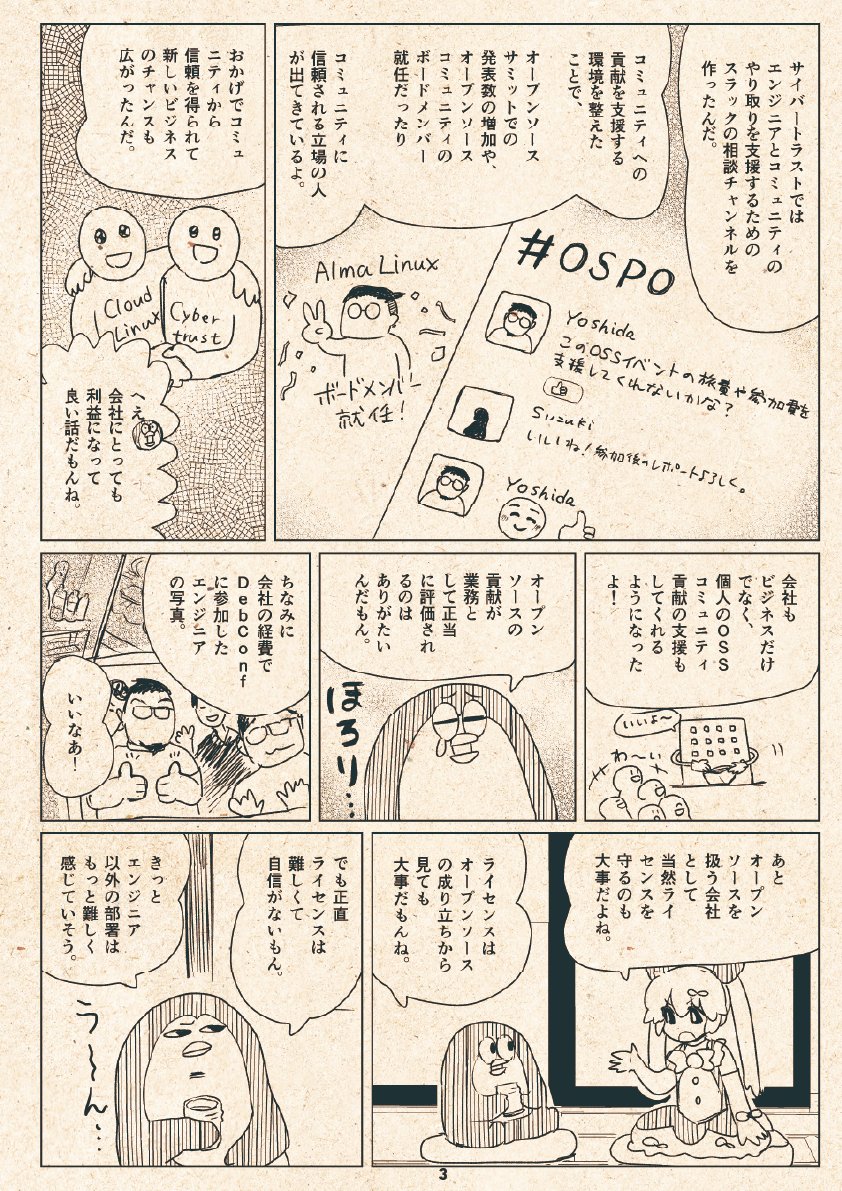 サイバートラストでは
エンジニアとコミュニティの
やり取りを支援するための
スラックの相談チャンネルを
作ったんだ。
コミュニティへの
貢献を支援する
環境を整えた
ことで、
オープンソース
サミットでの
発表数の増加や、
オープンソース
コミュニティの
ボードメンバー
就任だったり
コミュニティに
信頼される立場の人
が出てきているよ。
#OSPO
Yoshida
このOSSイベントの旅費や参加費を
支援してくれないかな?
Suzuki
いいしね!参加後のレポートよろしく。
Yoshida
Alma Linux
ボードメンバー
就任!
おかげでコミュ
ニティから
信頼を得られて
新しいビジネス
のチャンスも
広がったんだ。
Cloud
Linux
Cyber
trust
へえ
会社にとっても
利益になって
良い話だもんね。
会社も
ビジネスだけ
でなく、
個人のOSS
コミュニティ
貢献の支援も
してくれる
ようになった
よ!
いいよ~
わ~い
オープン
ソースの
貢献が
業務と
して正当
に評価され
るのは
ありがたい
んだもん。
ほろり…
ちなみに
会社の経費で
DebConf
に参加した
エンジニア
の写真。
いいなあ!
あと
オープン
ソースを
扱う会社
として
当然ライ
センスを
守るのも
大事だよね。
ライセンスは
オープンソース
の成り立ちから
見ても
大事だもんね。
でも正直
ライセンスは
難しくて
自信がないもん。
きっと
エンジニア
以外の部署は
もっと難しく
感じていそう。
う~~ん…
3